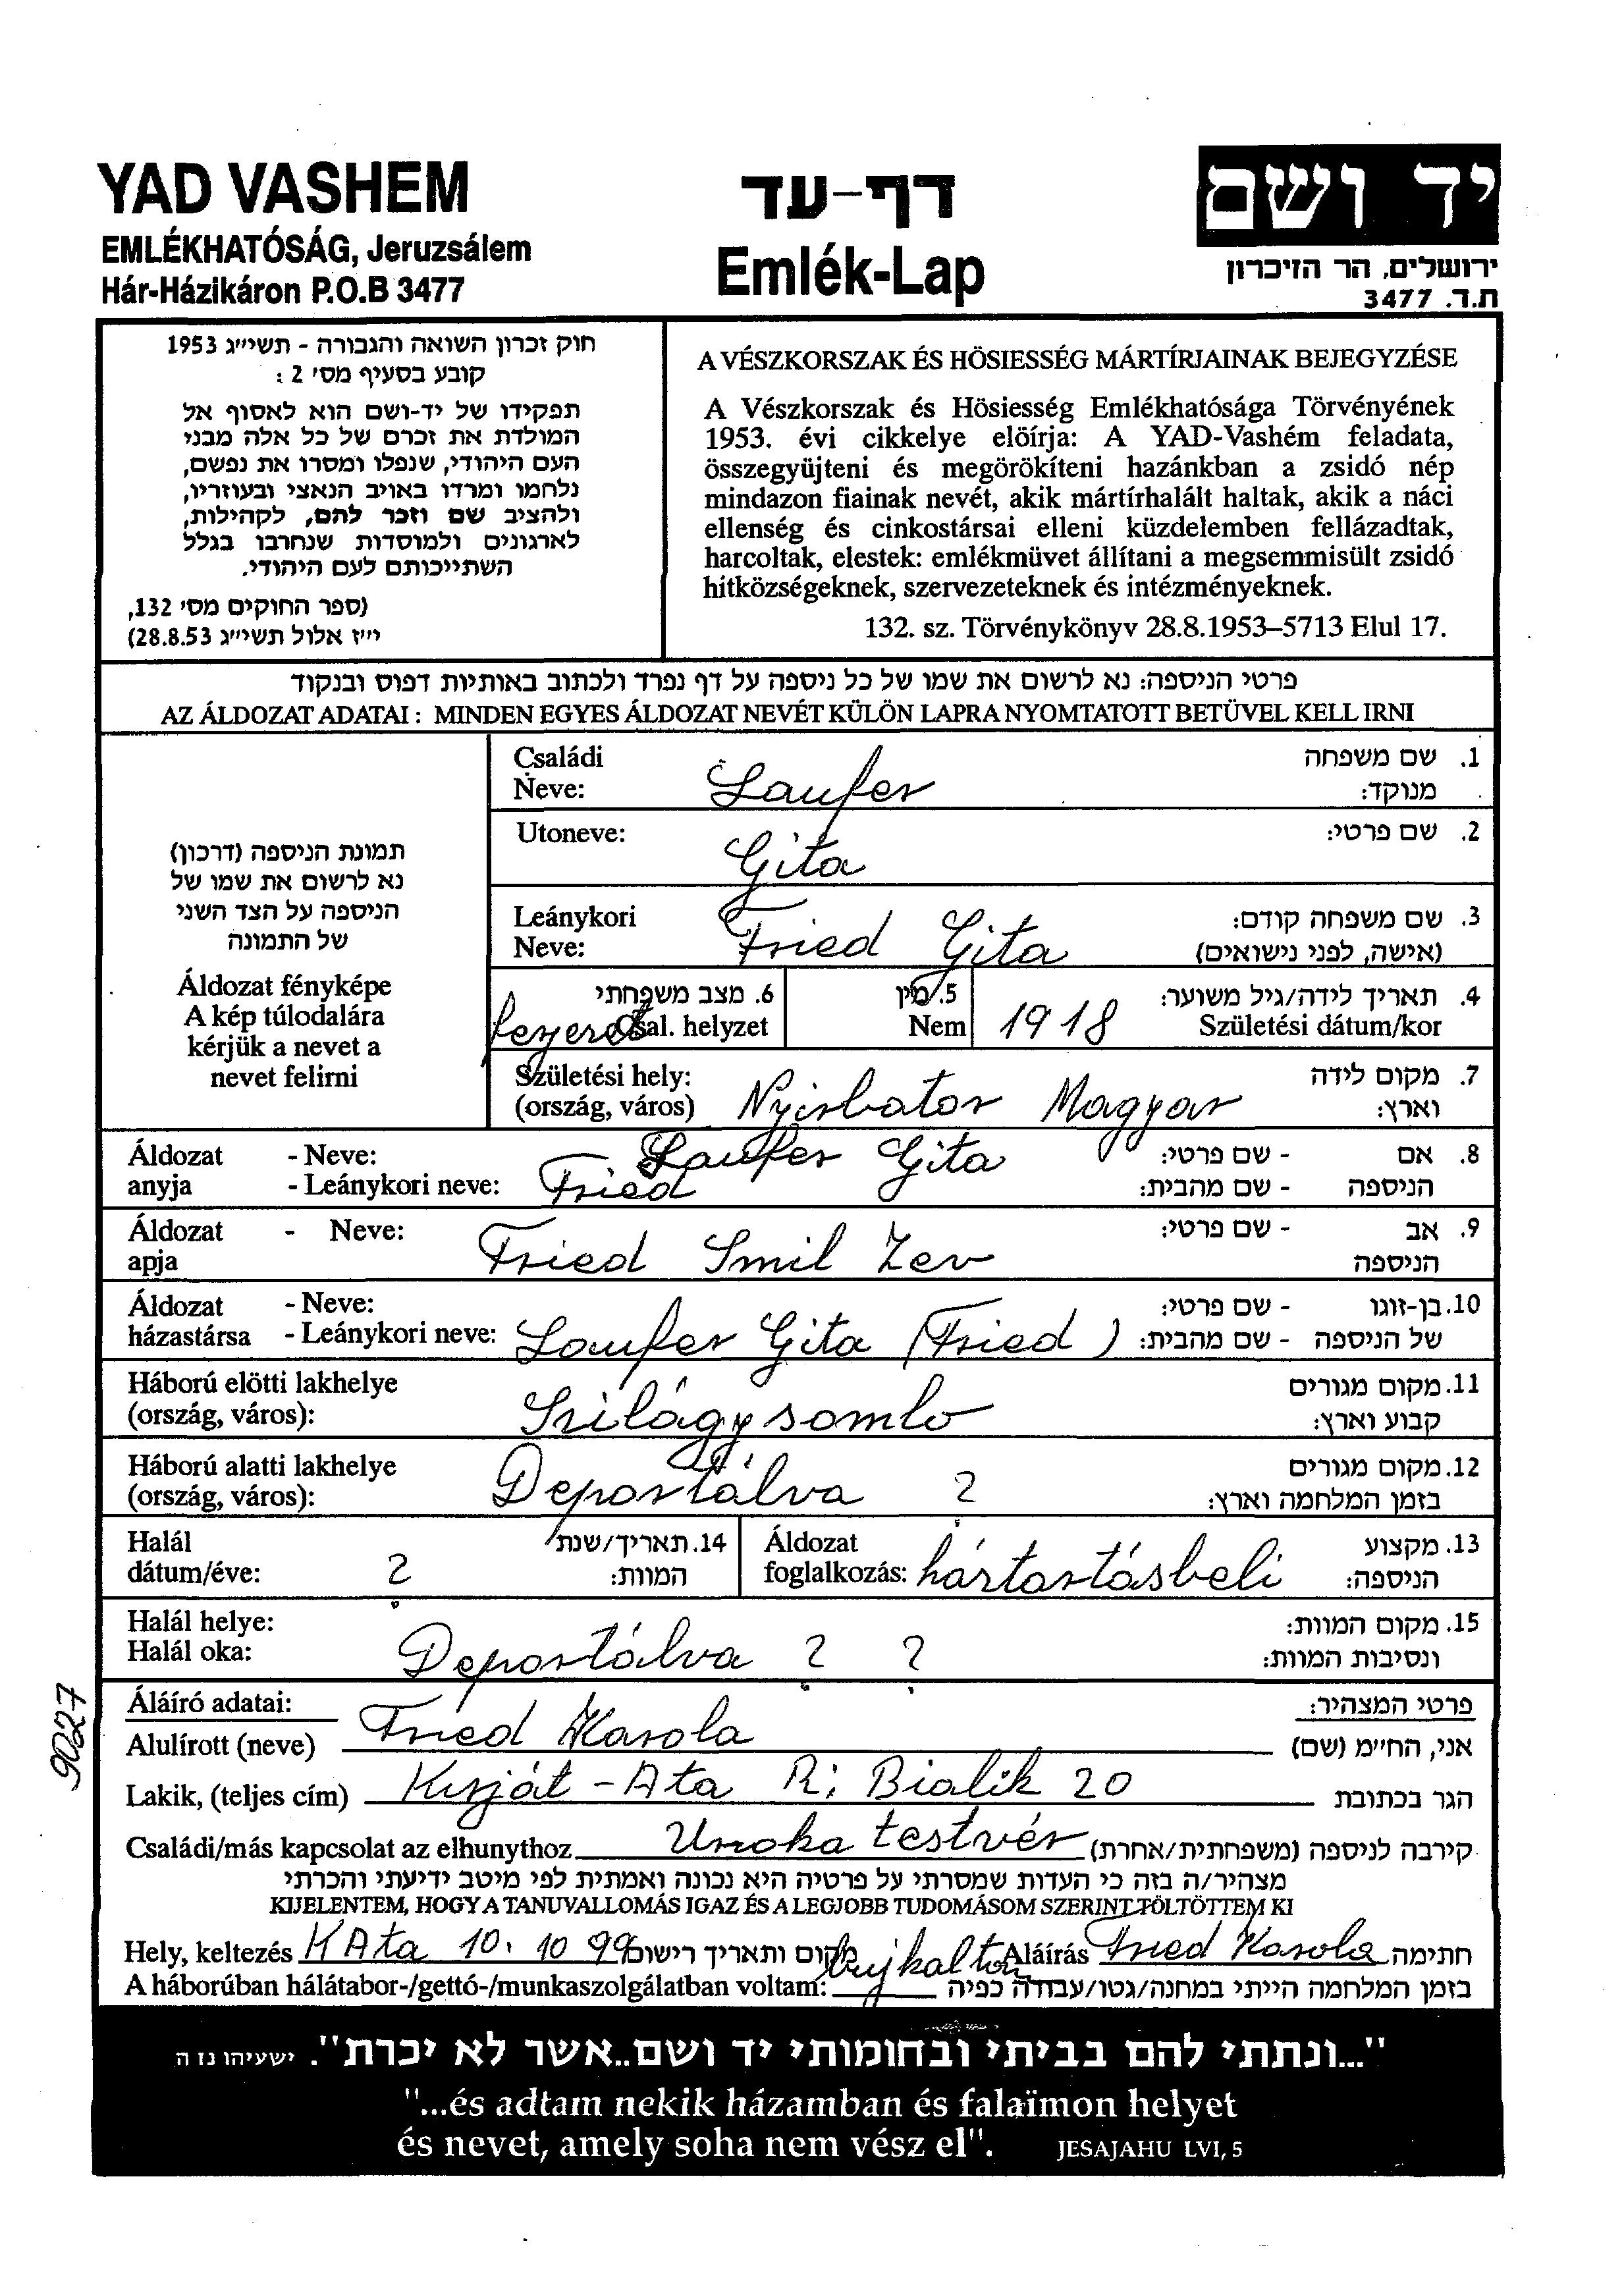 YAD VASHEM
EMLÉKHATÓSÁG, Jeruzsálem
Hár-Házikáron P.O.B 3477
דף-עד
Emlék-Lap
יד ושם
ירושלים, הר הזיכרון
ת.ד. 3477
חוק זכרון השואה והגבורה - תשי״ג 1953
קובע בסעיף מס׳ 2 :
תפקידו של יד-ושם הוא לאסוף אל
המולדת את זכרם של כל אלה מבני
העם היהודי, שנפלו ומסרו את נפשם,
נלחמו ומרדו באויב הנאצי ובעוזריו,
ולהציב שם וזכר להם, לקהילות,
לארגונים ולמוסדות שנחרבו בגלל
השתייכותם לעם היהודי.
(ספר החוקים מס׳ 132,
י״ז אלול תשי״ג 28.8.53)
A VÉSZKORSZAK ÉS HÖSIESSÉG MÁRTÍRJAINAK BEJEGYZÉSE
A Vészkorszak és Hösiesség Emlékhatósága Törvényének
1953. évi cikkelye elöírja: A YAD-Vashém feladata,
összegyüjteni és megörökíteni hazánkban a zsidó nép
mindazon fiainak nevét, akik mártírhalált haltak, akik a náci
ellenség és cinkostársai elleni küzdelemben fellázadtak,
harcoltak, elestek: emlékmüvet állítani a megsemmisült zsidó
hitközségeknek, szervezeteknek és intézményeknek.
132. sz. Törvénykönyv 28.8.1953–5713 Elul 17.
פרטי הניספה: נא לרשום את שמו של כל ניספה על דף נפרד ולכתוב באותיות דפוס ובנקוד
AZ ÁLDOZAT ADATAI : MINDEN EGYES ÁLDOZAT NEVÉT KÜLÖN LAPRA NYOMTATOTT BETÜVEL KELL IRNI
תמונת הניספה (דרכון)
נא לרשום את שמו של
הניספה על הצד השני
של התמונה
Áldozat fényképe
A kép túlodalára
kérjük a nevet a
nevet felirni
Családi
Neve: Laufer
1. שם משפחה
מנוקד:
Utoneve: Gita
2. שם פרטי:
Leánykori
Neve: Fried Gita
3. שם משפחה קודם:
(אישה, לפני נישואים)
6. מצב משפחתי
Csal. helyzet
5. מין
Nem
1918
4. תאריך לידה/גיל משוער:
Születési dátum/kor
Születési hely:
(ország, város) Nyirbator Magyar
7. מקום לידה
וארץ:
Áldozat - Neve: Laufer Gita
anyja - Leánykori neve: Fried
8. אם - שם פרטי:
הניספה - שם מהבית:
Áldozat - Neve:
apja Fried Smil Zev
9. אב - שם פרטי:
הניספה
Áldozat - Neve:
házastársa - Leánykori neve: Laufer Gita (Fried)
10. בן-זוגו - שם פרטי:
של הניספה - שם מהבית:
Háború elötti lakhelye
(ország, város): Szilágysomlo
11. מקום מגורים
קבוע וארץ:
Háború alatti lakhelye
(ország, város): Deportálva ?
12. מקום מגורים
בזמן המלחמה וארץ:
Halál
dátum/éve: ?
14. תאריך/שנת
המוות:
Áldozat
foglalkozás: hártartásbeli
13. מקצוע
הניספה:
Halál helye:
Halál oka: Deportálva ? ?
15. מקום המוות:
ונסיבות המוות:
Áláíró adatai:
פרטי המצהיר:
Alulírott (neve) Fried Karola
אני, החי״מ (שם)
Lakik, (teljes cím) Kirját - Ata R; Bialik 20
הגר בכתובת
Családi/más kapcsolat az elhunythoz Unoka testvér קירבה לניספה (משפחתית/אחרת)
מצהיר/ה בזה כי העדות שמסרתי על פרטיה היא נכונה ואמתית לפי מיטב ידיעתי והכרתי
KIJELENTEM, HOGY A TANUVALLOMÁS IGAZ ÉS A LEGJOBB TUDOMÁSOM SZERINT TÖLTÖTTEM KI
Hely, keltezés K Ata 10. 10 99 מקום ותאריך רישום Aláírás Fried Karola חתימה
A háborúban hálátabor-/gettó-/munkaszolgálatban voltam: בזמן המלחמה הייתי במחנה/גטו/עבודה כפיה
9027
"...ונתתי להם בביתי ובחומותי יד ושם..אשר לא יכרת". ישעיהו נז ה
"...és adtam nekik házamban és falaïmon helyet
és nevet, amely soha nem vész el". JESAJAHU LVI, 5